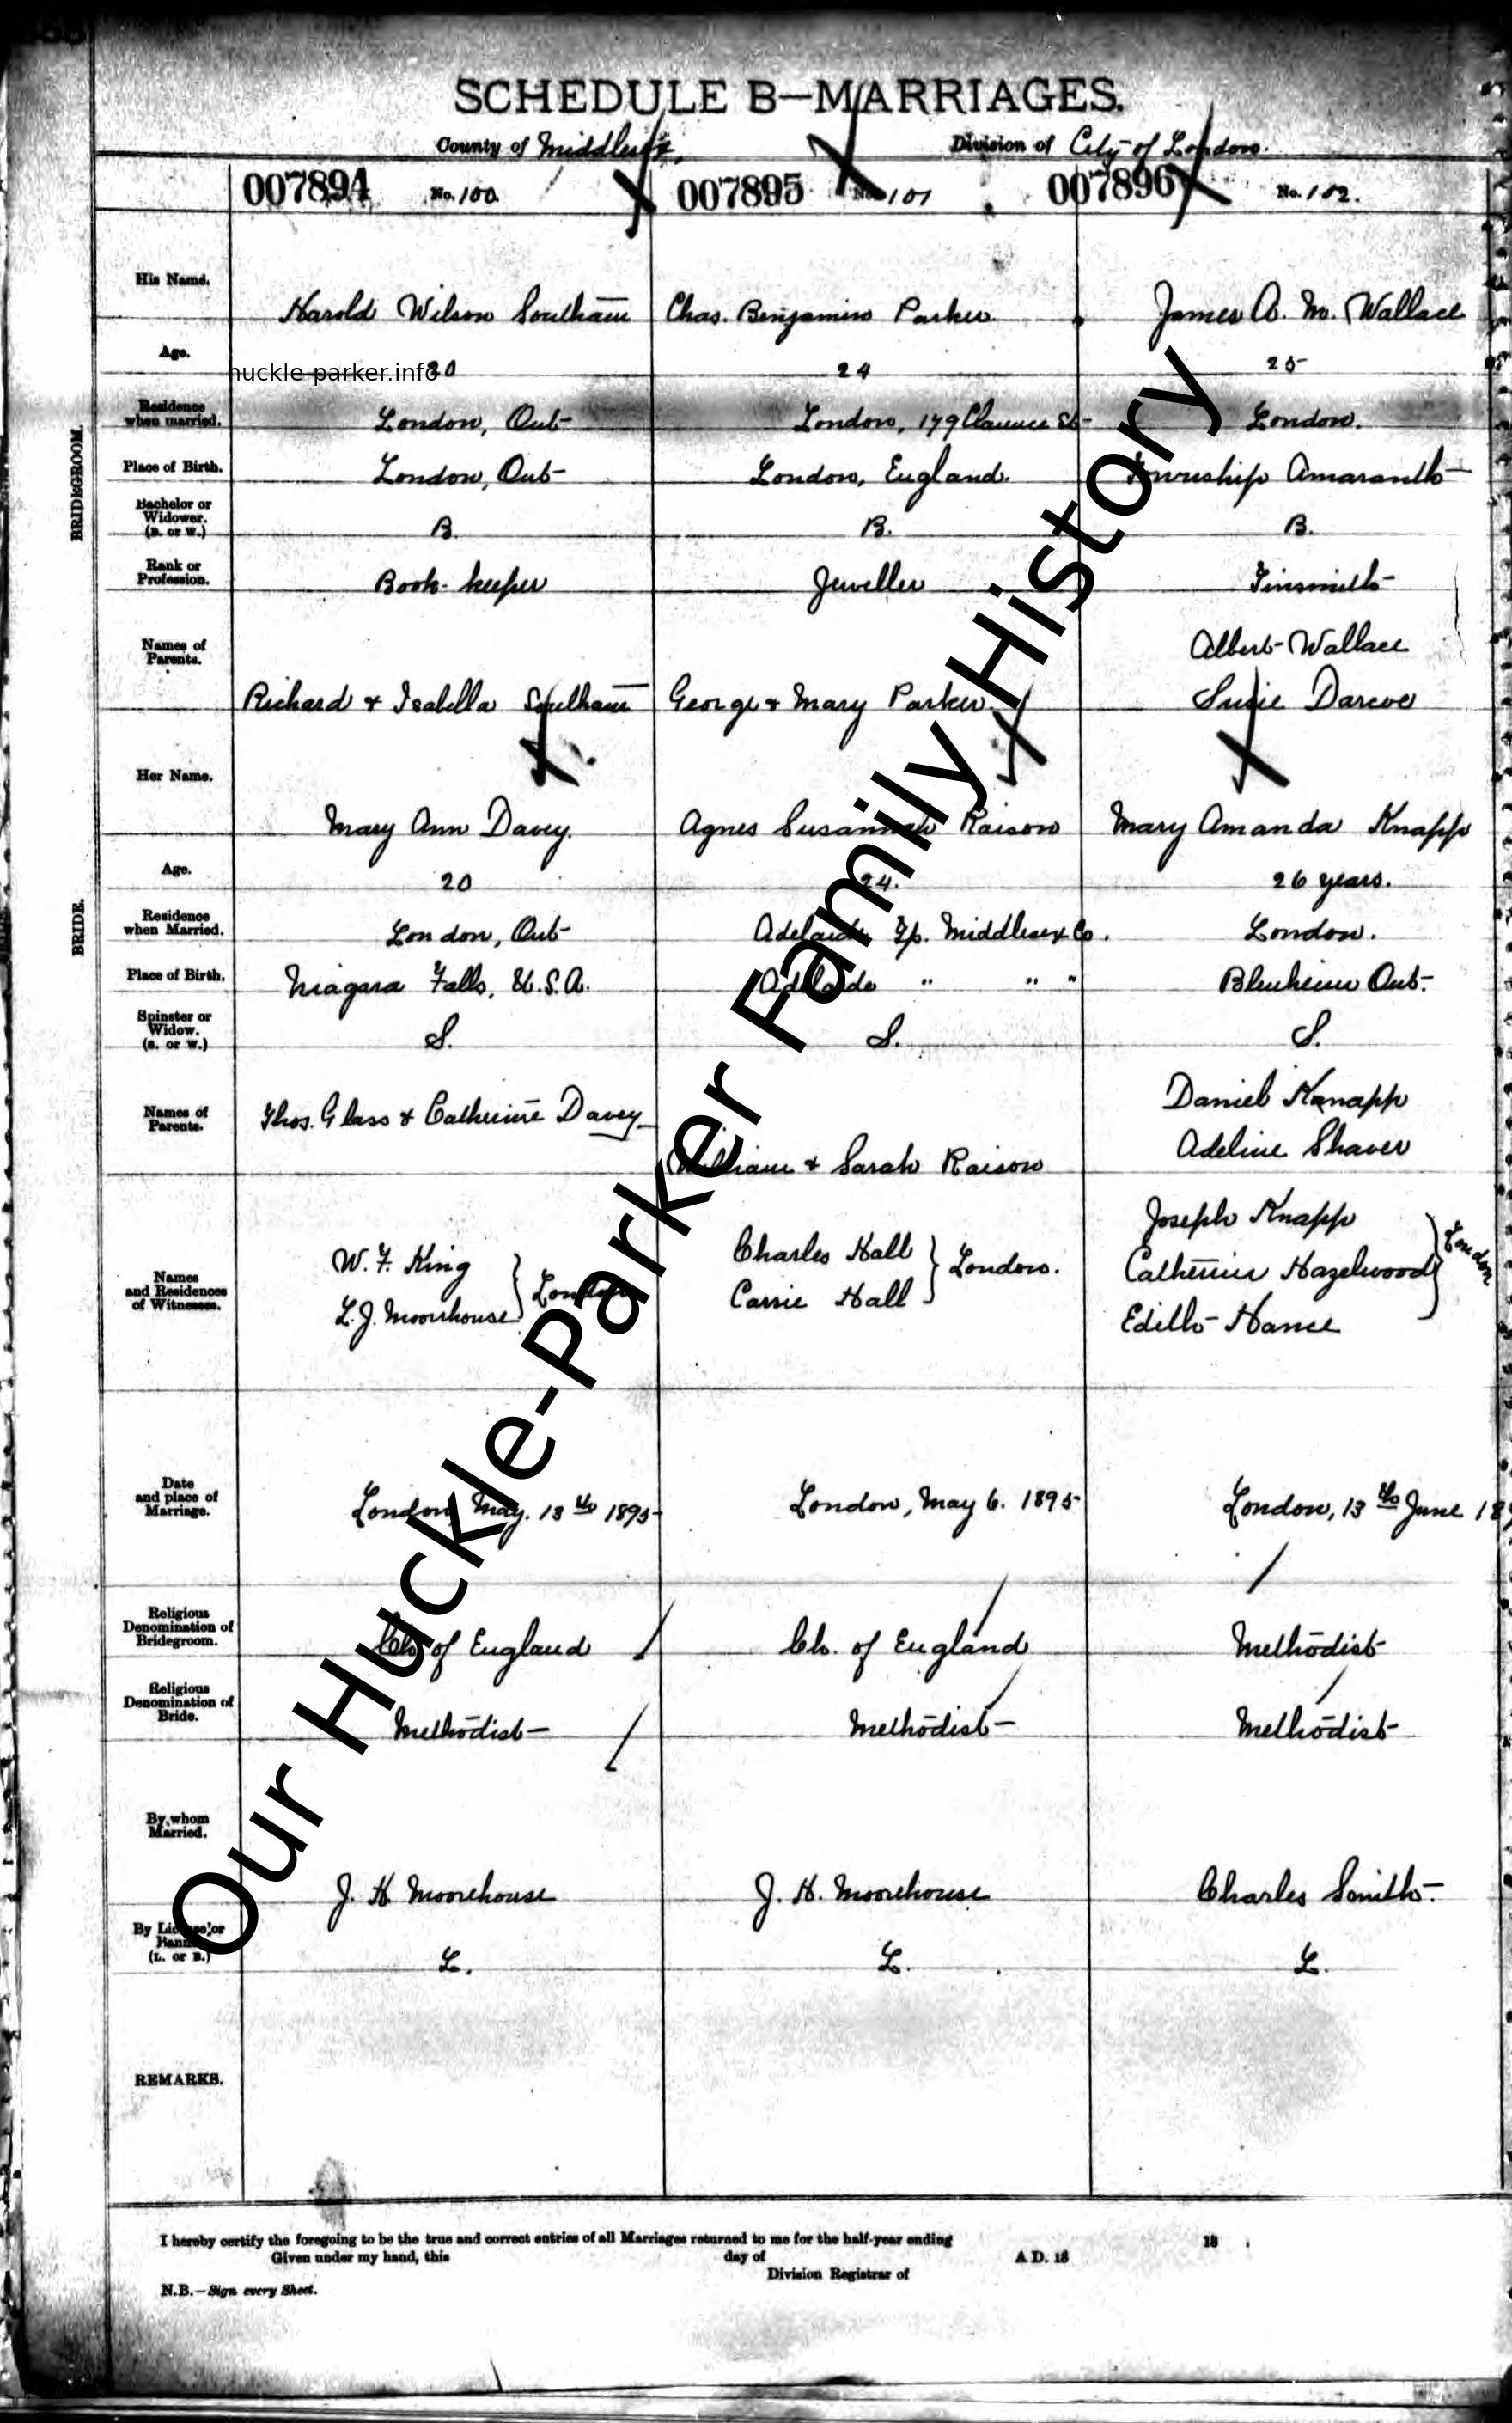 SCHEDULE B—MARRIAGES.
County of Middlesex, Division of City of London.
007894 No. 100 007895 No. 101 007896 No. 102.
BRIDEGROOM.
His Name. Harold Wilson Southam Chas. Benjamin Parker James A. M. Wallace
Age. 30 24 25
huckle-parker.info
Residence when married. London, Ont London, 179 Clarence St London.
Place of Birth. London, Ont London, England. Township Amaranth
Bachelor or Widower. (B. or W.) B. B. B.
Rank or Profession. Book-keeper Jeweller Tinsmith
Names of Parents. Richard & Isabella Southam George & Mary Parker. Albert Wallace
Susie Darcoe
BRIDE.
Her Name. Mary Ann Davey. Agnes Susannah Raison Mary Amanda Knapp
Age. 20 24. 26 years.
Residence when Married. London, Ont Adelaide Tp. Middlesex Co. London.
Place of Birth. Niagara Falls, U.S.A. Adelaide " " " Blenheim Ont.
Spinster or Widow. (S. or W.) S. S. S.
Names of Parents. Thos. Glass & Catherine Davey William & Sarah Raison Daniel Knapp
Adeline Shaver
Names and Residences of Witnesses. W. F. King
L. J. Moorhouse } London Charles Hall
Carrie Hall } London. Joseph Knapp
Catherine Hazelwood
Edith Hance } London
Date and place of Marriage. London, May. 13th 1895 London, May 6. 1895 London, 13th June 18
Religious Denomination of Bridegroom. Ch. of England Ch. of England Methodist
Religious Denomination of Bride. Methodist Methodist Methodist
By whom Married. J. H. Moorehouse J. H. Moorehouse Charles Smith.
By License or Banns (L. or B.) L. L. L.
REMARKS.
I hereby certify the foregoing to be the true and correct entries of all Marriages returned to me for the half-year ending 18
Given under my hand, this day of A D. 18
Division Registrar of
N.B.—Sign every Sheet.
Our Huckle-Parker Family History